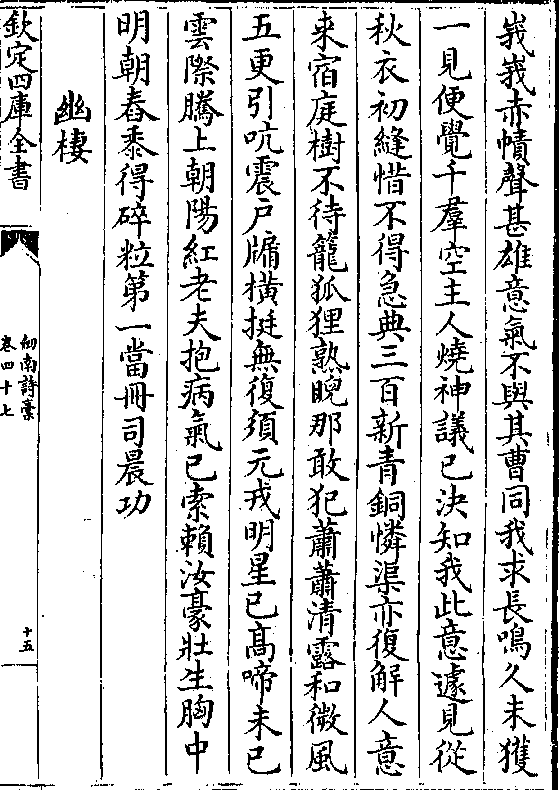 峩峩赤幘聲甚雄意氣不與其曹同我求長鳴久未獲
一見便覺千羣空主人燒神議已決知我此意遽見從
秋衣初縫惜不得急典三百新青銅憐渠亦復解人意
来宿庭樹不待籠狐狸熟睨那敢犯蕭蕭清露和微風
五更引吭震户牖横挺無復須元戎明星已髙啼未已
雲際騰上朝陽紅老夫抱病氣已索賴汝豪壯生胸中
明朝舂黍得碎粒第一當册司晨功
幽棲
欽定四庫全書
劎南詩藁
卷四十七
十五